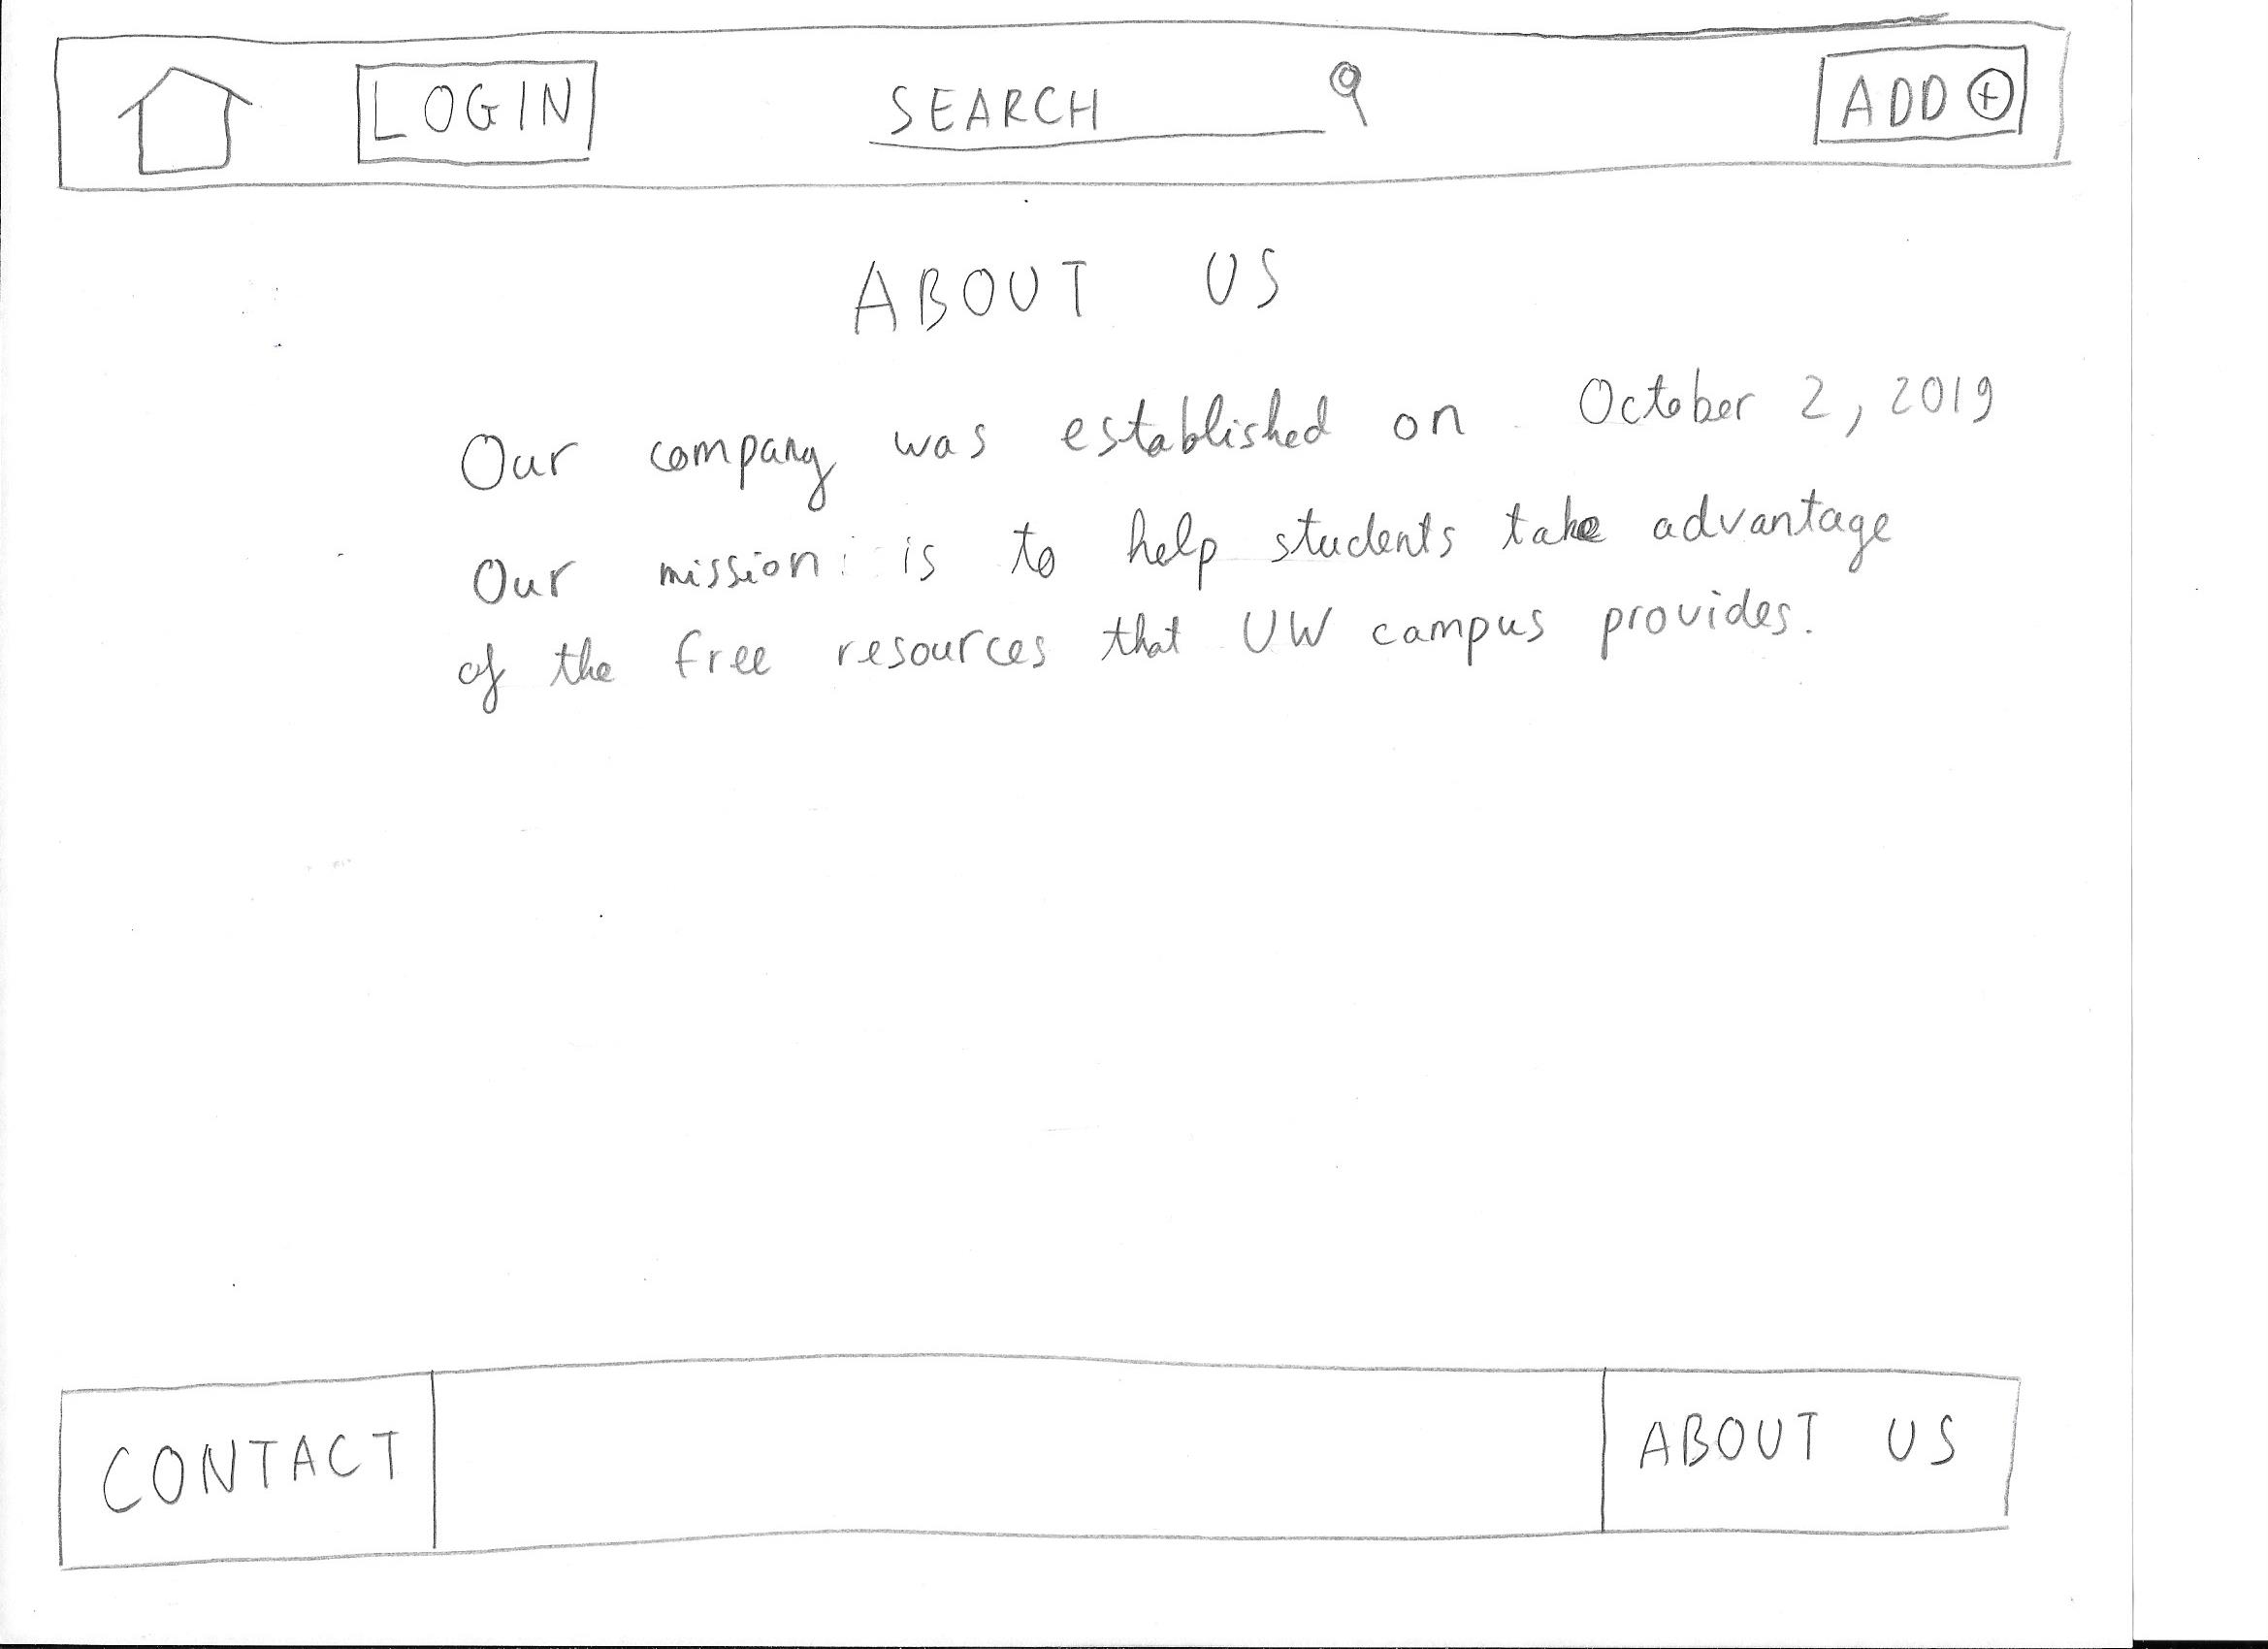 LOGIN SEARCH ADD +
ABOUT US
Our company was established on October 2, 2019
Our mission: is to help students take advantage
of the free resources that UW campus provides.
CONTACT ABOUT US